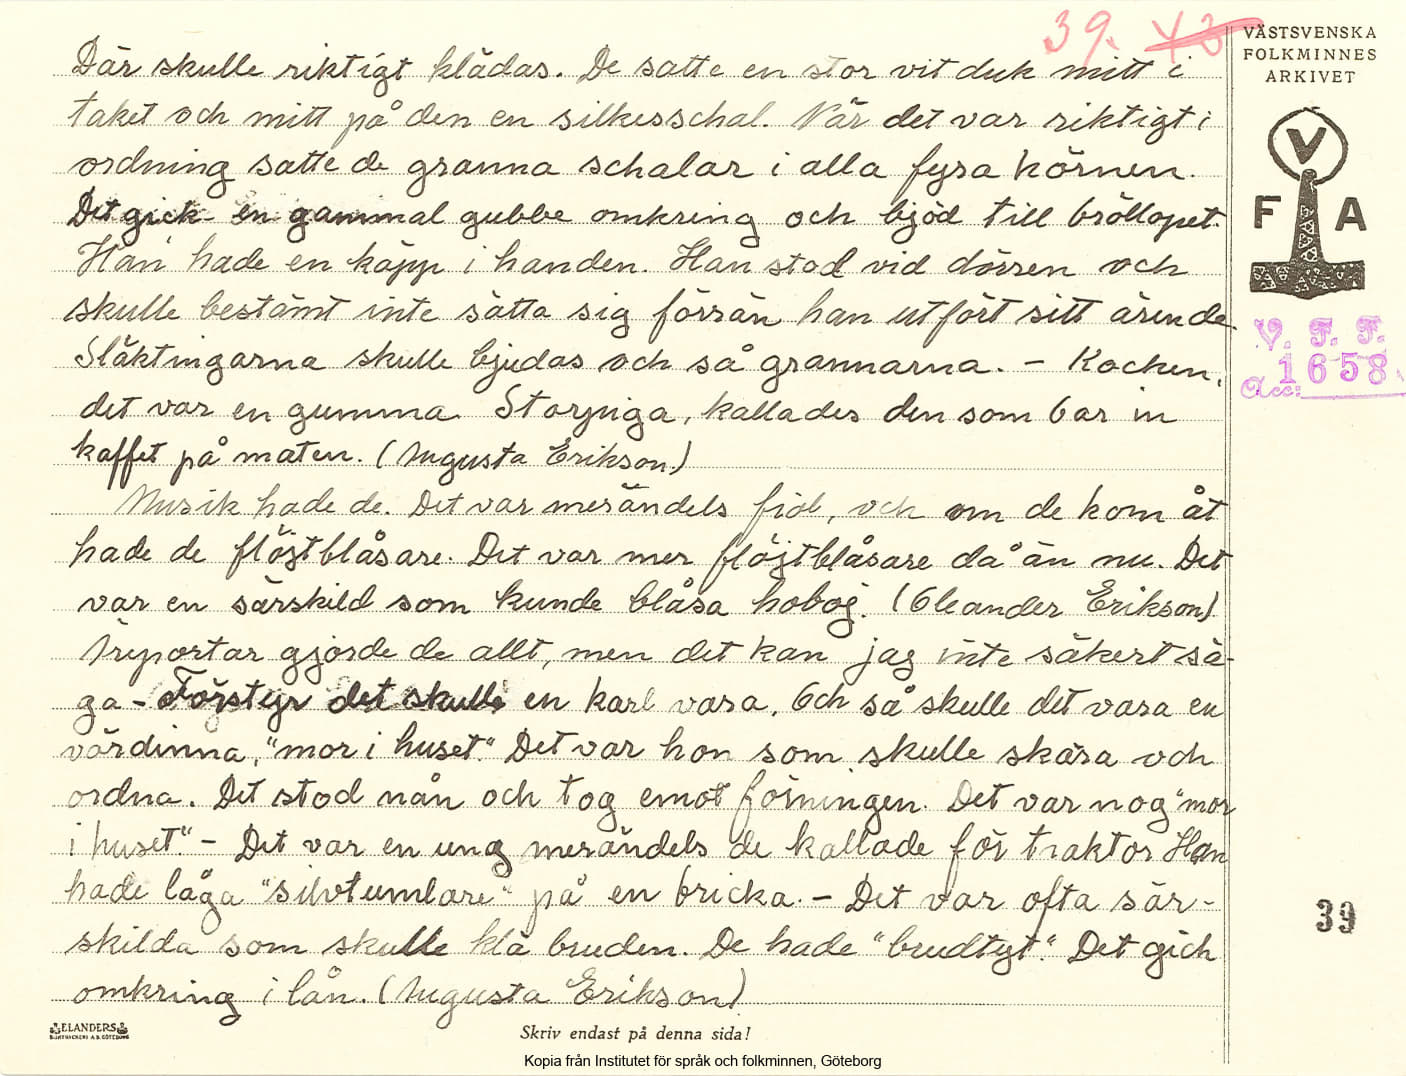 39. 43
VÄSTSVENSKA
FOLKMINNES
ARKIVET
V
F A
V. F. F.
1658
Acc:
Där skulle riktigt klädas. De satte en stor vit duk mitt i
taket och mitt på den en silkesschal. När det var riktigt i
ordning satte de granna schalar i alla fyra hörnen.
Det gick en gammal gubbe omkring och bjöd till bröllopet.
Han hade en käpp i handen. Han stod vid dörren och
skulle bestämt inte sätta sig förrän han utfört sitt ärende.
Släktingarna skulle bjudas och så grannarna. – Kocken,
det var en gumma. Storpiga, kallades den som bar in
kaffet på maten. (Augusta Erikson)
Musik hade de. Det var merändels fiol, och om de kom åt
hade de flöjtblåsare. Det var mer flöjtblåsare då än nu. Det
var en särskild som kunde blåsa hoboj. (Oleander Erikson)
Äreportar gjorde de allt, men det kan jag inte säkert sä-
ga – Förstyr det skulle en karl vara. Och så skulle det vara en
värdinna, "mor i huset". Det var hon som skulle skära och
ordna. Det stod nån och tog emot förningen. Det var nog "mor
i huset". – Det var en ung merändels de kallade för traktor Han
hade låga "silvtumlare" på en bricka. – Det var ofta sär-
skilda som skulle klä bruden. De hade "brudtyt". Det gick
omkring i lån. (Augusta Erikson)
39
ELANDERS
Skriv endast på denna sida!
Kopia från Institutet för språk och folkminnen, Göteborg